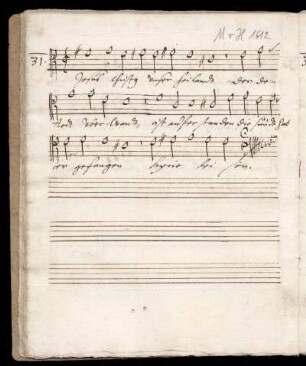 M v H 1612
31.
Jesus Christus unser Heiland der den
Todt uber wandt, ist aufferstanden die sünde hat
er gefangen kyrie